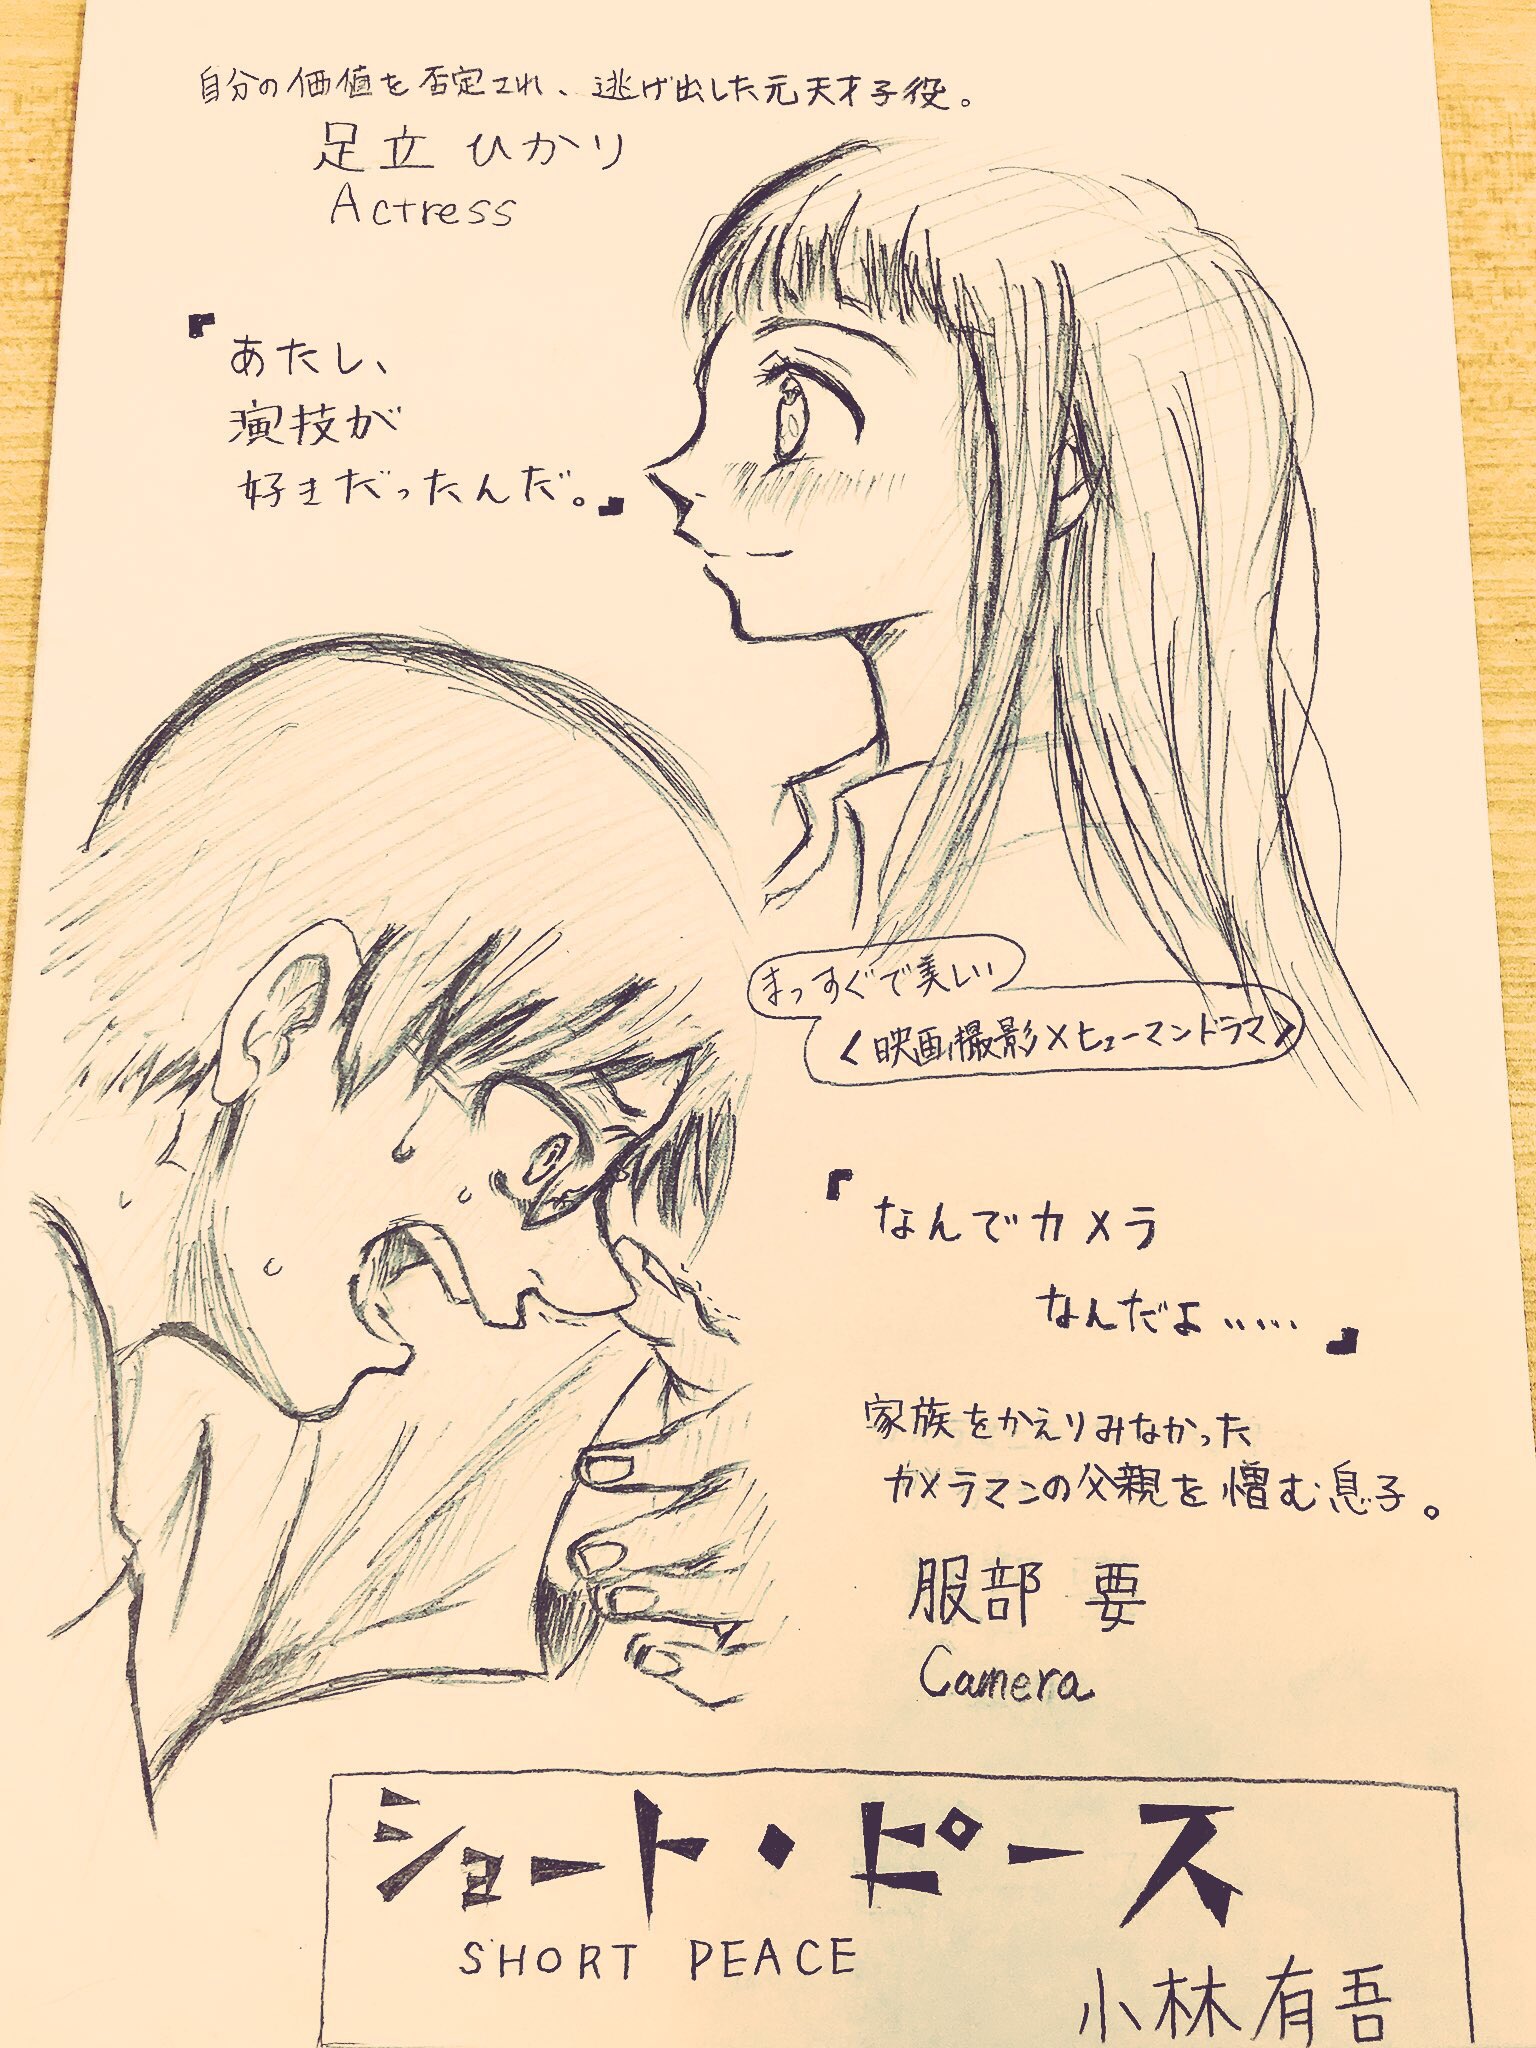 自分の価値を否定され、逃げ出した元天才子役。
足立 ひかり
Actress
『あたし、
演技が
好きだったんだ。』
まっすぐで美しい
〈映画撮影×ヒューマンドラマ〉
『なんでカメラ
なんだよ……』
家族をかえりみなかった
カメラマンの父親を憎む息子。
服部 要
Camera
ショート・ピース
SHORT PEACE
小林有吾